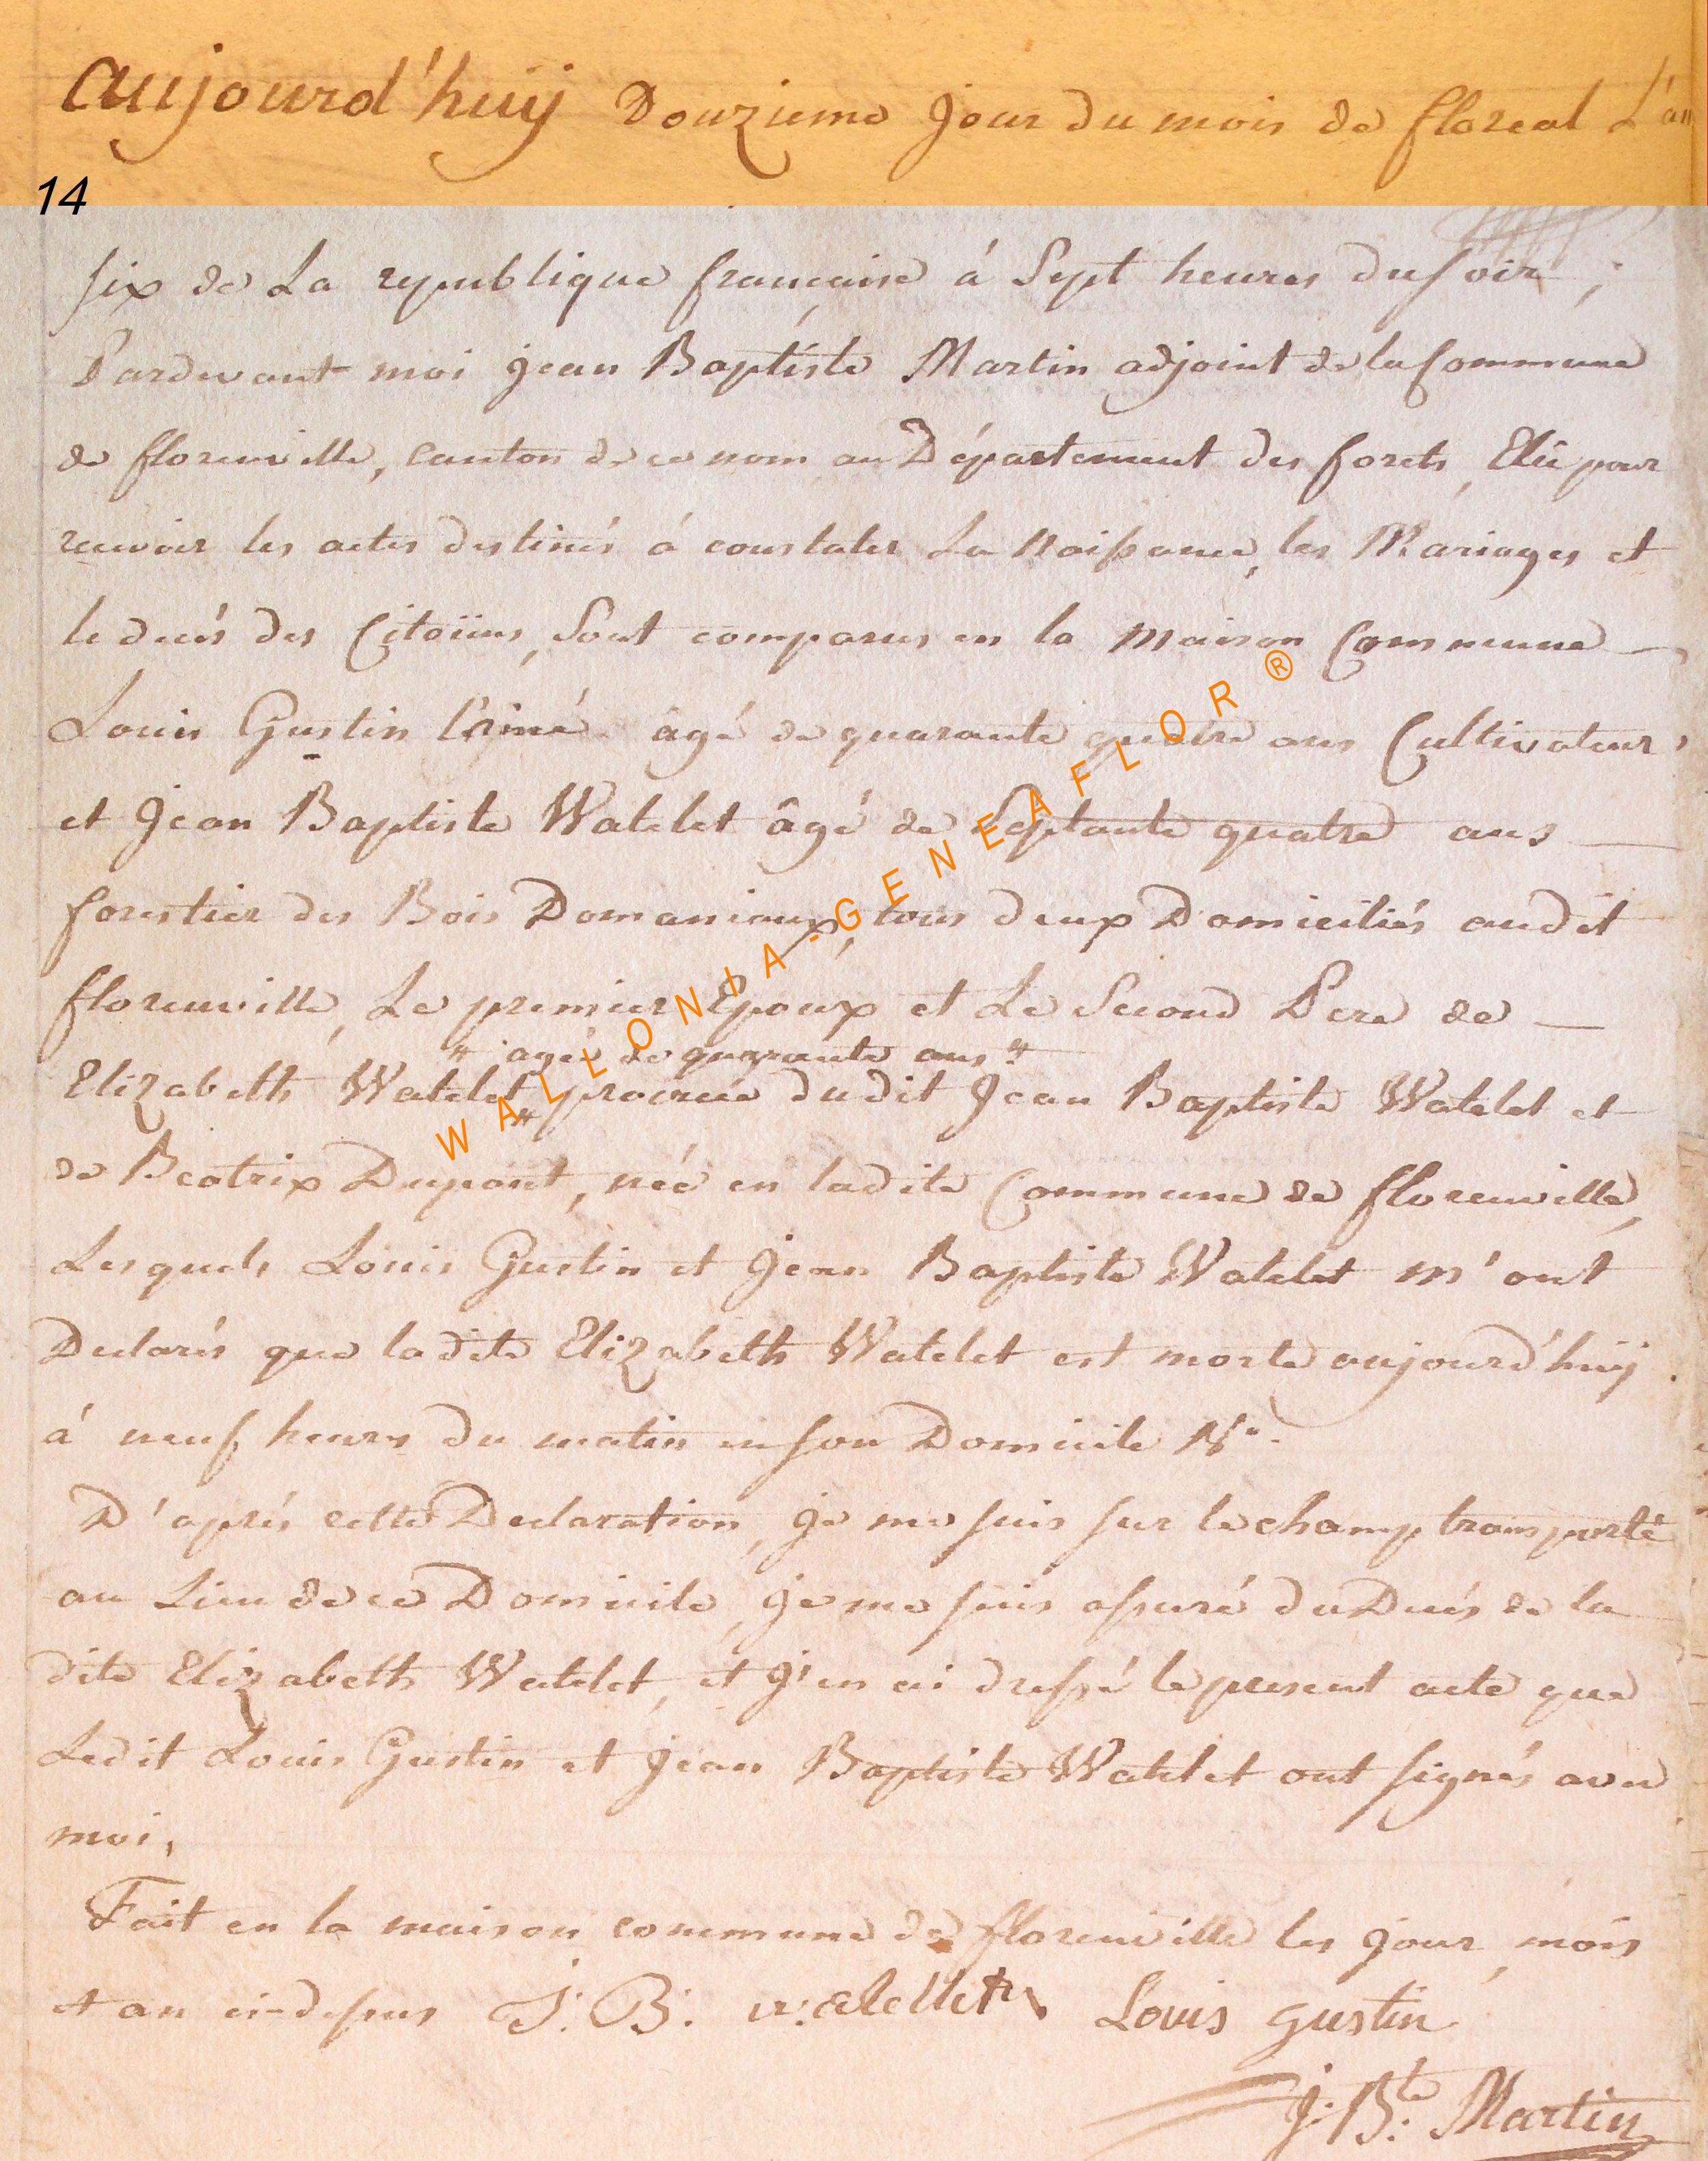 aujourd'huÿ Douzieme Jour du mois de floreal L'an
14
six de La republique française á Sept heures du soir ;
Pardevant moi Jean Baptiste Martin adjoint de la Commune
de florenville, canton de ce nom au Département des forets, Elû pour
recevoir les actes destinés á constater La Naissance, les Mariages et
le decés des Citoïens, Sont comparus en la maison Commune —
Louis Gustin l'ainé âgé de quarante quatre ans Cultivateur,
et Jean Baptiste Watelet âgé de Septante quatre ans —
forestier des Bois Domaniaux, tous deux Domiciliés audit
florenville, Le premier Epoux et Le Second Pere de —
" agée de quarante ans "
Elizabeth Watelet " procreée dudit Jean Baptiste Watelet et
de Beatrix Dupont, née en ladite Commune de florenville,
Lesquels Louis Gustin et Jean Baptiste Watelet m'ont
Declarés que ladite Elizabeth Watelet est morte aujourd'huÿ
á neuf heures du matin en son Domicile N°.
D'aprés cette Declaration, Je me suis sur le champ transporté
au Lieu de ce Domicile, Je me suis assuré du Decés de la
dite Elizabeth Watelet, et J'en ai dressé le present acte que
Ledit Louis Gustin et Jean Baptiste Watelet ont signés avec
moi,
Fait en la maison commune de florenville les Jour, mois
et an ci-dessus J: B: Louis gustin
J: Bte: Martin
WALLONIA-GENEAFLOR ®